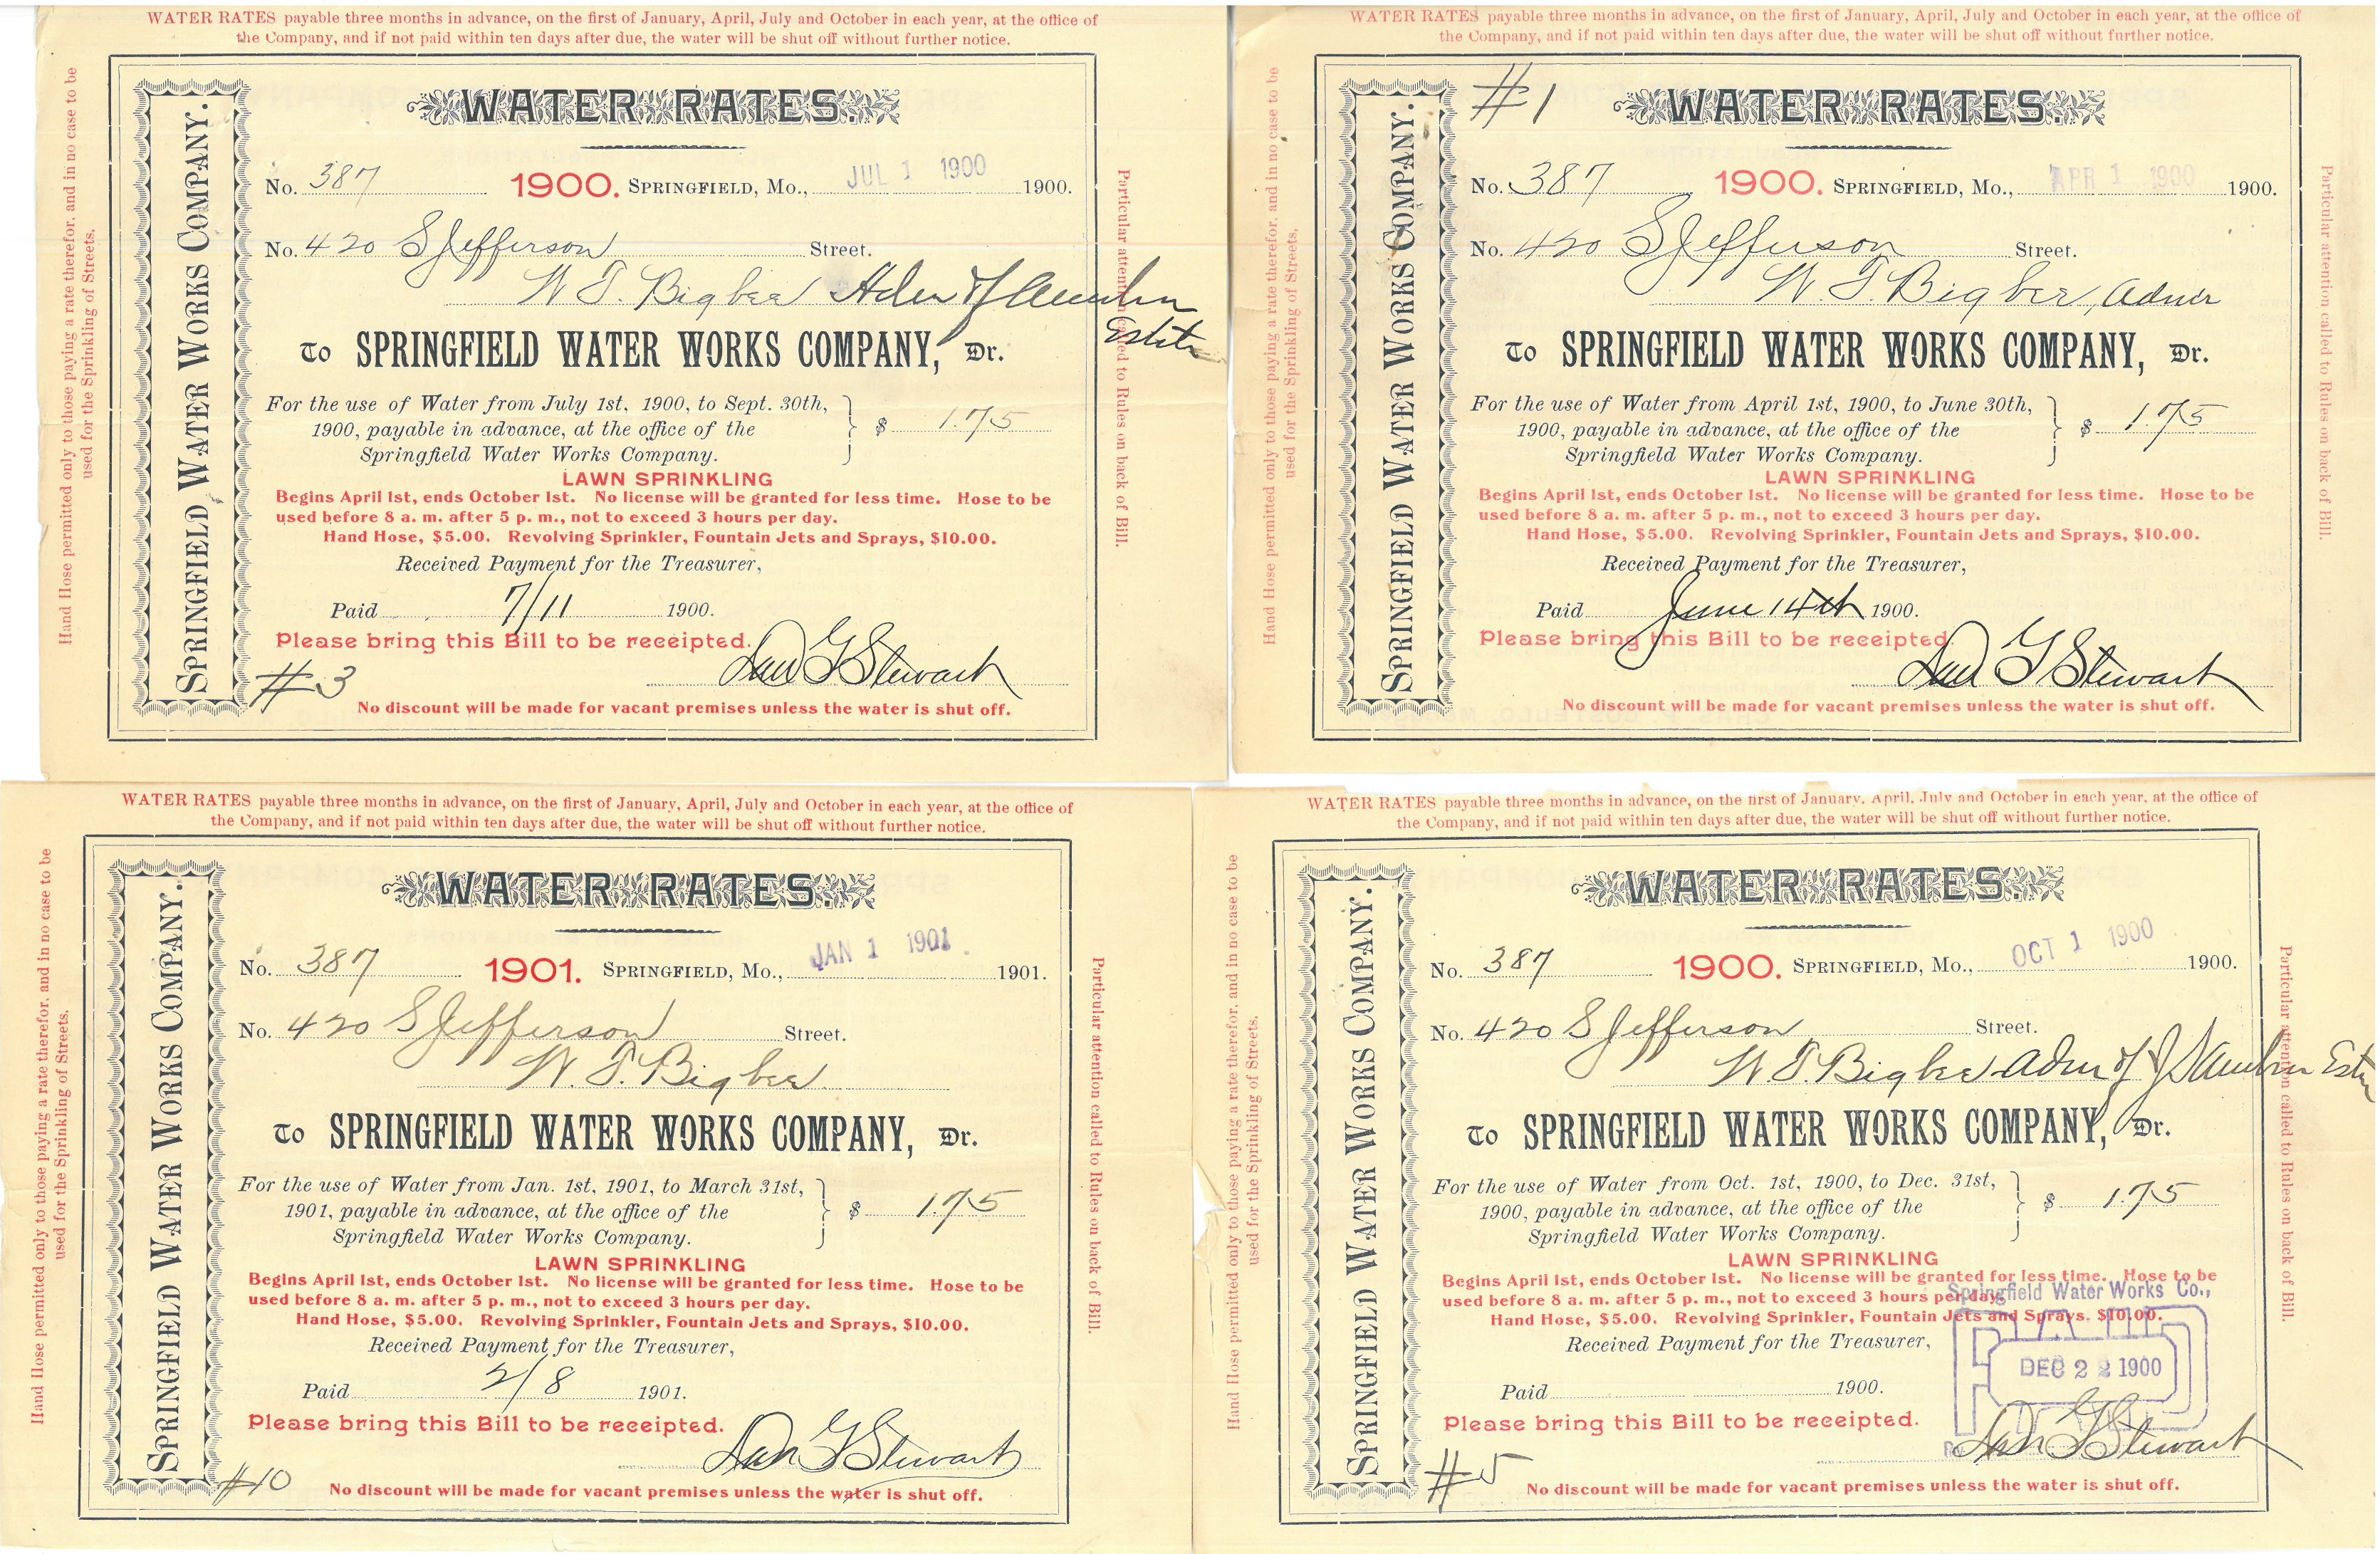 WATER RATES payable three months in advance, on the first of January, April, July and October in each year, at the office of
the Company, and if not paid within ten days after due, the water will be shut off without further notice.
Hand Hose permitted only to those paying a rate therefor, and in no case to be
used for the Sprinkling of Streets.
SPRINGFIELD WATER WORKS COMPANY.
WATER RATES.
No. 387 1900. SPRINGFIELD, Mo., JUL 1 1900 1900.
No. 420 S Jefferson Street.
W. T. Bigbee
Estate
To SPRINGFIELD WATER WORKS COMPANY, Dr.
For the use of Water from July 1st, 1900, to Sept. 30th,
1900, payable in advance, at the office of the
Springfield Water Works Company.
$ 1.75
LAWN SPRINKLING
Begins April 1st, ends October 1st. No license will be granted for less time. Hose to be
used before 8 a. m. after 5 p. m., not to exceed 3 hours per day.
Hand Hose, $5.00. Revolving Sprinkler, Fountain Jets and Sprays, $10.00.
Received Payment for the Treasurer,
Paid 7/11 1900.
Please bring this Bill to be receipted.
G Stewart
#3
No discount will be made for vacant premises unless the water is shut off.
Particular attention called to Rules on back of Bill.
WATER RATES payable three months in advance, on the first of January, April, July and October in each year, at the office of
the Company, and if not paid within ten days after due, the water will be shut off without further notice.
Hand Hose permitted only to those paying a rate therefor, and in no case to be
used for the Sprinkling of Streets.
SPRINGFIELD WATER WORKS COMPANY.
#1
WATER RATES.
No. 387 1900. SPRINGFIELD, Mo., APR 1 1900 1900.
No. 420 S Jefferson Street.
W. T. Bigbee, Admr
To SPRINGFIELD WATER WORKS COMPANY, Dr.
For the use of Water from April 1st, 1900, to June 30th,
1900, payable in advance, at the office of the
Springfield Water Works Company.
$ 1.75
LAWN SPRINKLING
Begins April 1st, ends October 1st. No license will be granted for less time. Hose to be
used before 8 a. m. after 5 p. m., not to exceed 3 hours per day.
Hand Hose, $5.00. Revolving Sprinkler, Fountain Jets and Sprays, $10.00.
Received Payment for the Treasurer,
Paid June 14th 1900.
Please bring this Bill to be receipted
G Stewart
No discount will be made for vacant premises unless the water is shut off.
Particular attention called to Rules on back of Bill.
WATER RATES payable three months in advance, on the first of January, April, July and October in each year, at the office of
the Company, and if not paid within ten days after due, the water will be shut off without further notice.
Hand Hose permitted only to those paying a rate therefor, and in no case to be
used for the Sprinkling of Streets.
SPRINGFIELD WATER WORKS COMPANY.
WATER RATES.
No. 387 1901. SPRINGFIELD, Mo., JAN 1 1901 1901.
No. 420 S Jefferson Street.
W. T. Bigbee
To SPRINGFIELD WATER WORKS COMPANY, Dr.
For the use of Water from Jan. 1st, 1901, to March 31st,
1901, payable in advance, at the office of the
Springfield Water Works Company.
$ 1.75
LAWN SPRINKLING
Begins April 1st, ends October 1st. No license will be granted for less time. Hose to be
used before 8 a. m. after 5 p. m., not to exceed 3 hours per day.
Hand Hose, $5.00. Revolving Sprinkler, Fountain Jets and Sprays, $10.00.
Received Payment for the Treasurer,
Paid 2/8 1901.
Please bring this Bill to be receipted.
G Stewart
#10
No discount will be made for vacant premises unless the water is shut off.
Particular attention called to Rules on back of Bill.
WATER RATES payable three months in advance, on the first of January, April, July and October in each year, at the office of
the Company, and if not paid within ten days after due, the water will be shut off without further notice.
Hand Hose permitted only to those paying a rate therefor, and in no case to be
used for the Sprinkling of Streets.
SPRINGFIELD WATER WORKS COMPANY.
WATER RATES.
No. 387 1900. SPRINGFIELD, Mo., OCT 1 1900 1900.
No. 420 S Jefferson Street.
W. T. Bigbee Admr of
To SPRINGFIELD WATER WORKS COMPANY, Dr.
For the use of Water from Oct. 1st, 1900, to Dec. 31st,
1900, payable in advance, at the office of the
Springfield Water Works Company.
$ 1.75
LAWN SPRINKLING
Begins April 1st, ends October 1st. No license will be granted for less time. Hose to be
used before 8 a. m. after 5 p. m., not to exceed 3 hours per day.
Springfield Water Works Co.,
Hand Hose, $5.00. Revolving Sprinkler, Fountain Jets and Sprays, $10.00.
Received Payment for the Treasurer,
PAID
DEC 22 1900
Paid 1900.
Please bring this Bill to be receipted.
G Stewart
#5
No discount will be made for vacant premises unless the water is shut off.
Particular attention called to Rules on back of Bill.